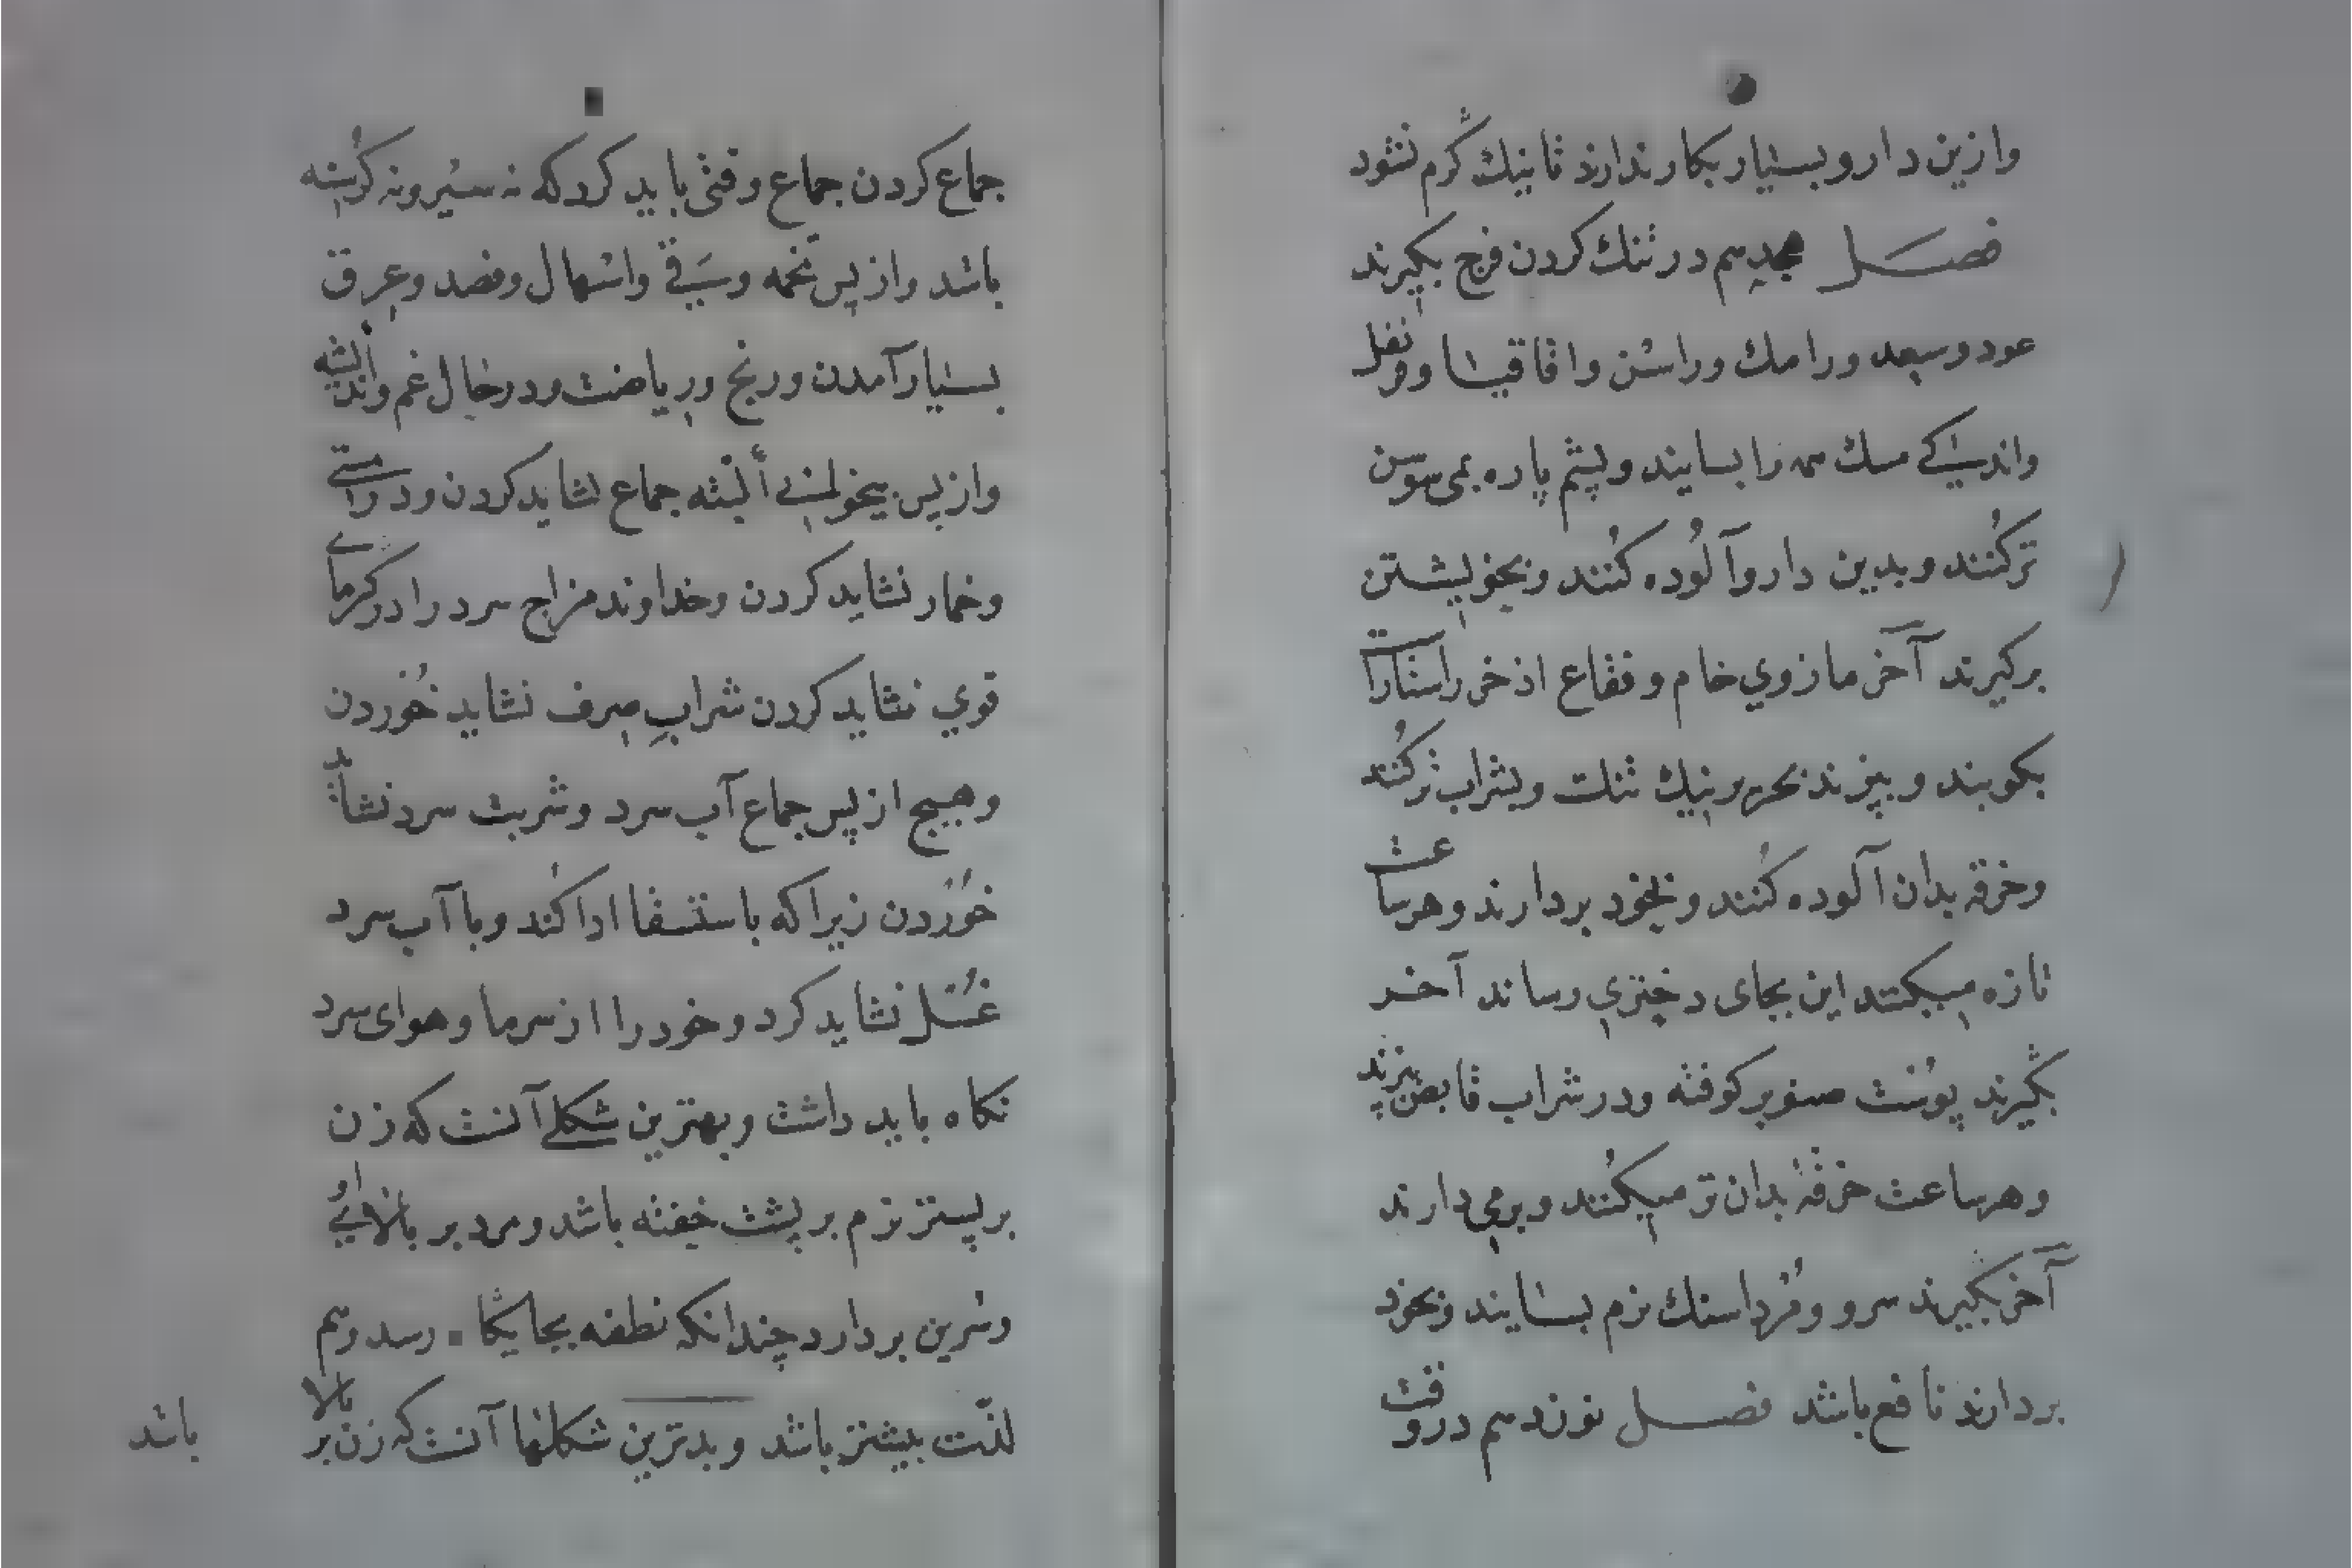 وازین دارو بسیار بکار ندارند تا نیك گرم نشود
فصل هجدهم در تنك کردن فرج بکیرند
عود و سعد و رامك و راسن و اقاقیا و قرنفل
واندکی مسك همه را بسایند و پشم پاره بمی سوسن
ترکنند و بدین دارو آلوده کنند و بخویشتن
برکیرند آخر مازوی خام و فقاع اذخر راستاراست
بکوبند و بپزند نیك تنك و بشراب ترکنند
و خرقه بدان آلوده کنند و بخود بردارند و هر ساعت
تازه میکنند این بجای دختری رساند آخر
بگیرند پوست صنوبر کوفته و در شراب قابض بپزند
و هر ساعت خرقهٔ بدان تر میکنند و برمی دارند
آخر بگیرند سرو و مرداسنك نرم بسایند و بخود
بردارند نافع باشد فصل نوزدهم در وقت
جماع کردن جماع وقتی باید کرد که نه سیر و نه گرسنه
باشد و از پس تخمه و قی و اسهال و فصد و عرق
بسیار آمدن و رنج و ریاضت و در حال غم و اندیشه
و از پس بیخوابی البته جماع نشاید کردن و در مستی
و خمار نشاید کردن و خداوند مزاج سرد را در گرمای
قوی نشاید کردن شراب صرف نشاید خوردن
و هیچ از پس جماع آب سرد و شربت سرد نشاید
خوردن زیرا که باستسقا ادا کند و با آب سرد
غسل نشاید کرد و خود را از سرما و هوای سرد
نکاه باید داشت و بهترین شکلی آنست که زن
بر بستر نرم بر پشت خفته باشد و مرد بر بالای او
و سرین بردارد چندانکه نطفه بجایکاه رسد و هم
لذّت بیشتر باشد و بدترین شکلها آنست که زن بر بالا
باشد